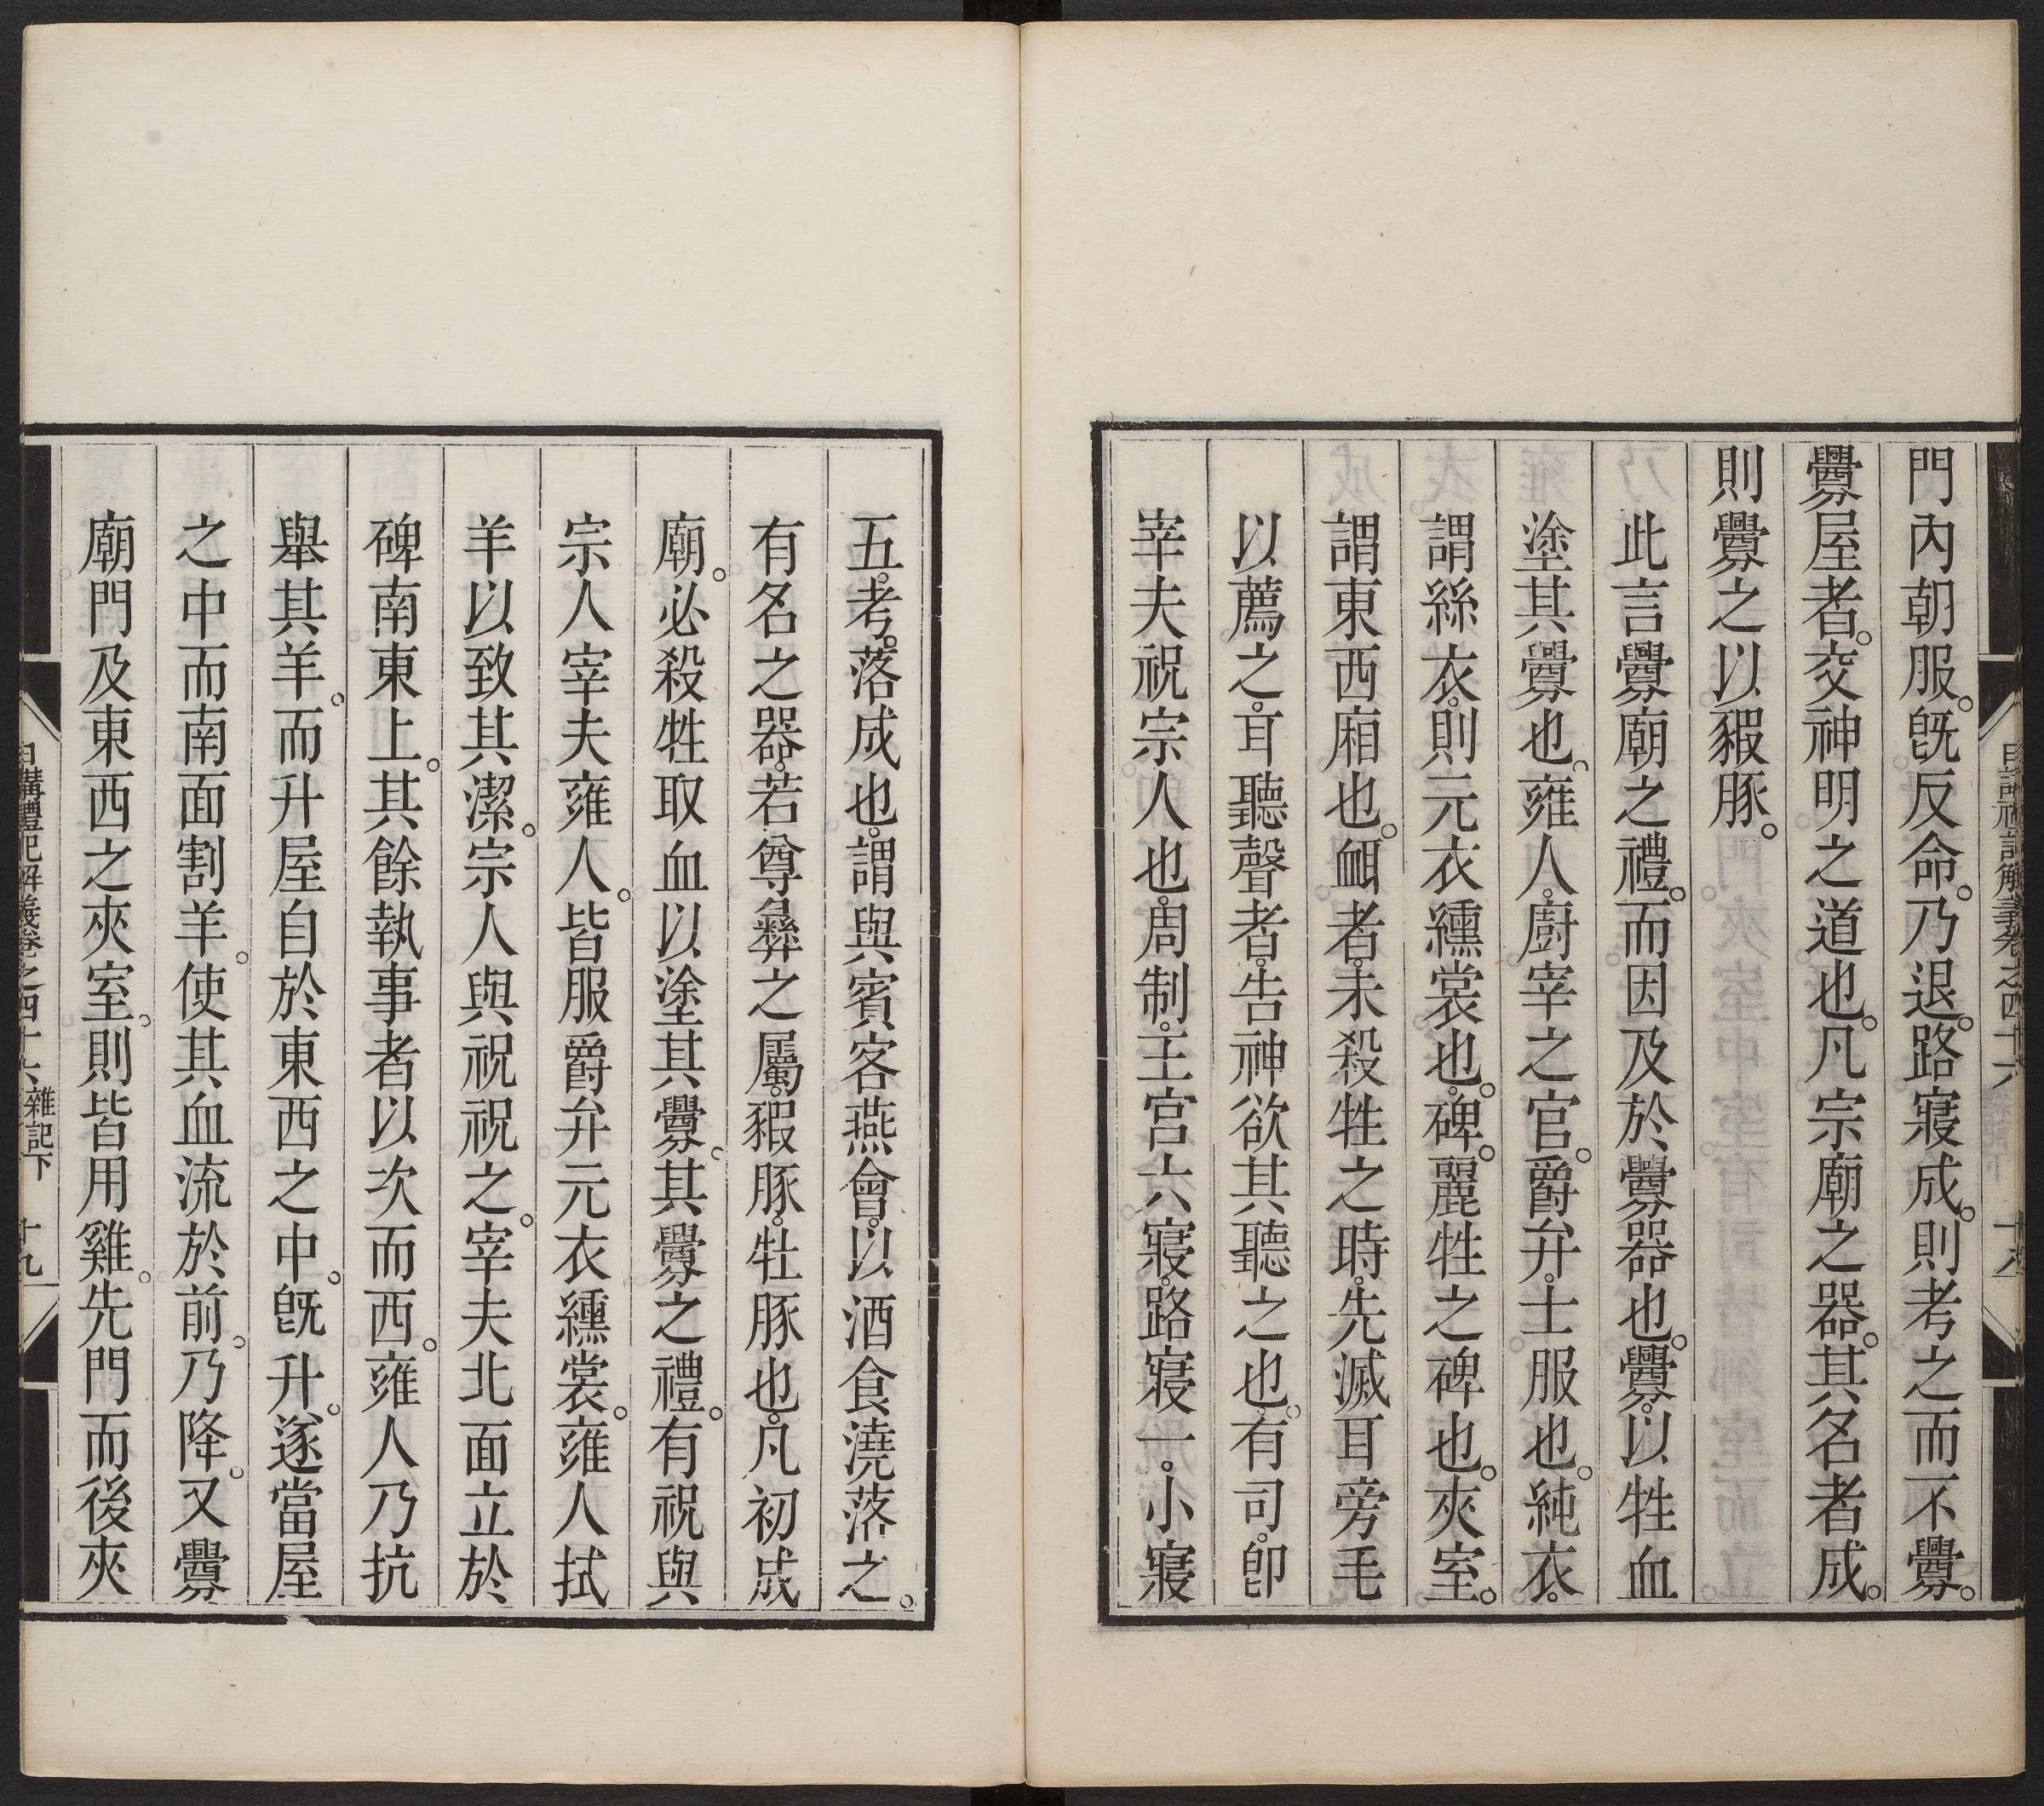 門內朝服。旣反命。乃退。路寢成。則考之而不釁。
釁屋者。交神明之道也。凡宗廟之器。其名者成。
則釁之以豭豚。
此言釁廟之禮。而因及於釁器也。釁。以牲血
塗其釁也。雍人。廚宰之官。爵弁。士服也。純衣。
謂絲衣。則元衣纁裳也。碑。麗牲之碑也。夾室。
謂東西廂也。衈者。未殺牲之時。先滅耳旁毛
以薦之。耳聽聲者。告神欲其聽之也。有司。卽
宰夫祝宗人也。周制。王宮六寢。路寢一。小寢
五。考。落成也。謂與賓客燕會。以酒食澆落之。
有名之器。若尊彝之屬。豭豚。牡豚也。凡初成
廟。必殺牲取血以塗其釁。其釁之禮。有祝與
宗人宰夫雍人。皆服爵弁元衣纁裳。雍人拭
羊以致其潔。宗人與祝祝之。宰夫北面立於
碑南東上。其餘執事者以次而西。雍人乃抗
舉其羊。而升屋自於東西之中。旣升。遂當屋
之中而南面割羊。使其血流於前。乃降。又釁
廟門及東西之夾室。則皆用雞。先門而後夾
日講禮記解義卷之四十六 雜記下 十九